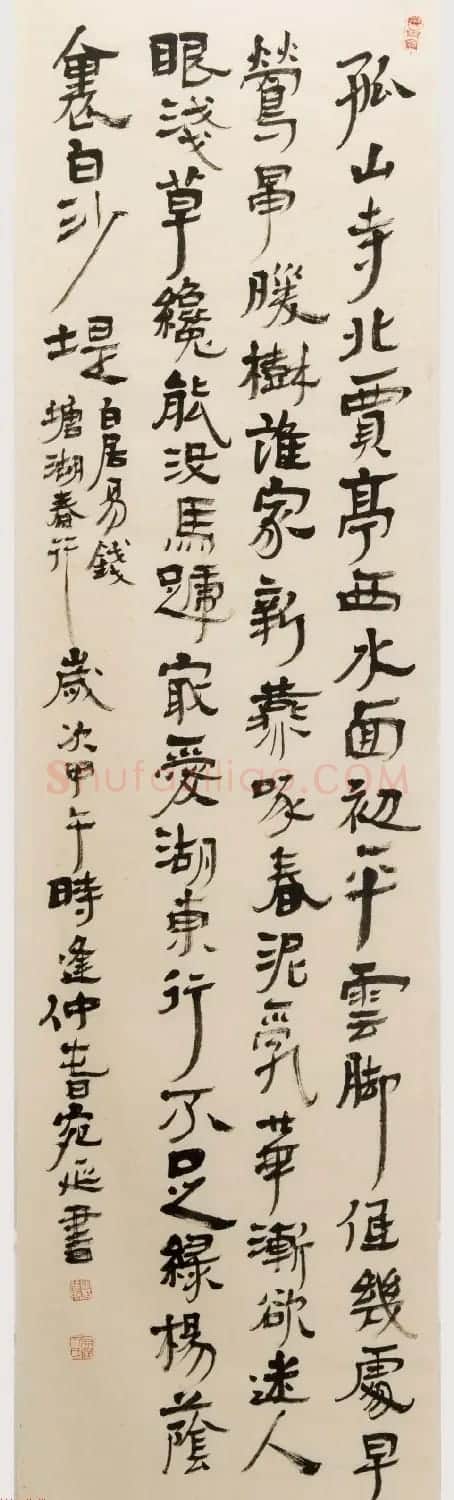 孤山寺北賈亭西水面初平雲脚低幾處早
鶯啼暖樹誰家新燕啄春泥亂華漸欲迷人
眼淺草纔能没馬蹏宷愛湖東行不足綠楊蔭
裏白沙堤
白居易錢
塘湖春行
歲次甲午時逢仲春宛延書
Shufaziliao.COM